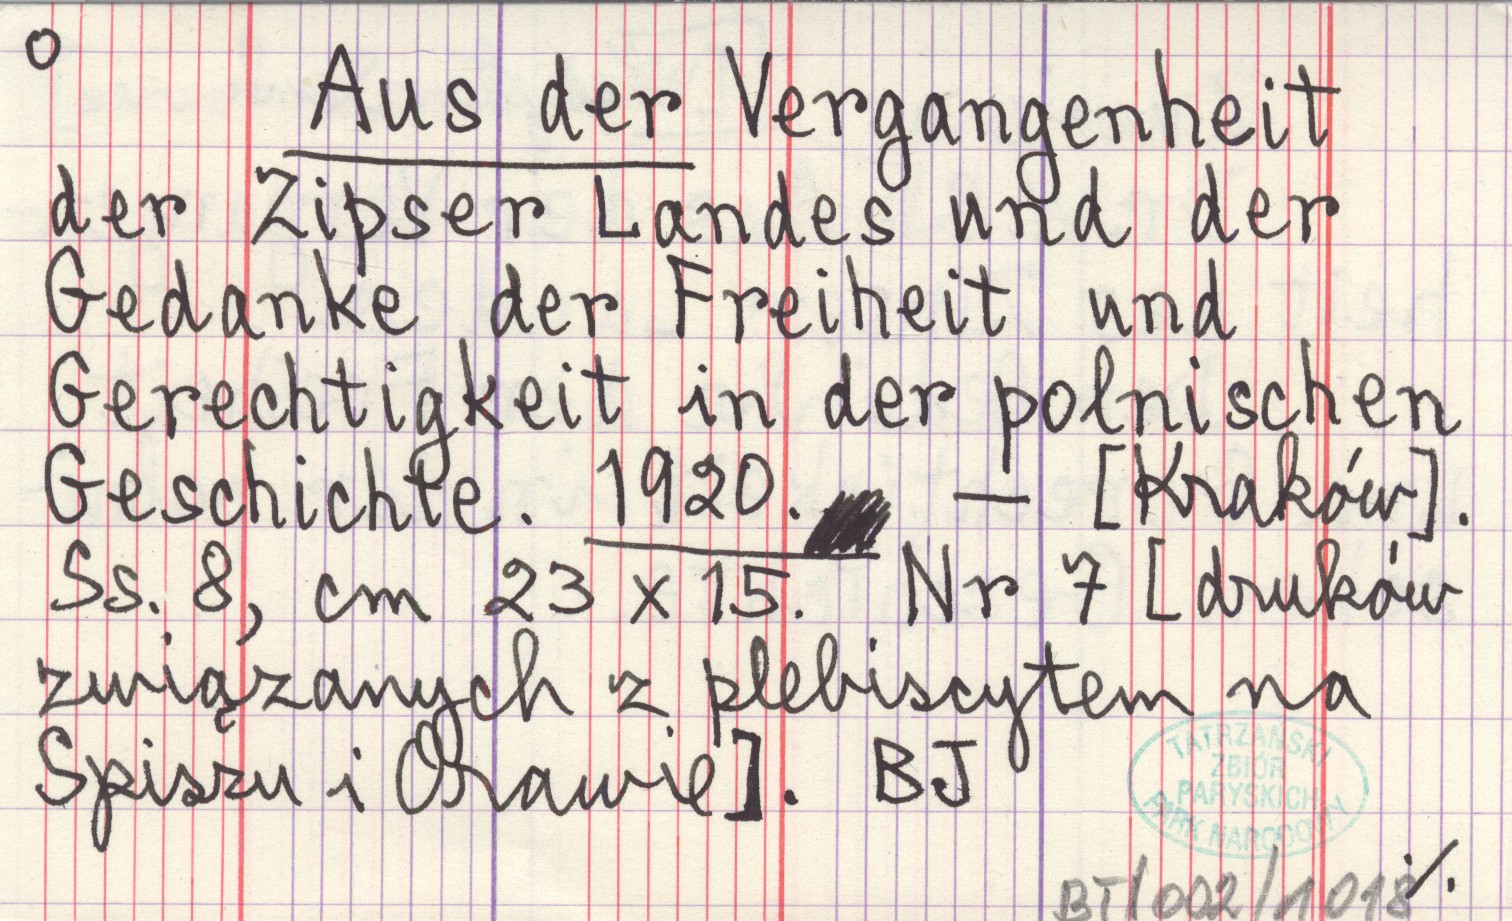 o
Aus der Vergangenheit
der Zipser Landes und der
Gedanke der Freiheit und
Gerechtigkeit in der polnischen
Geschichte. 1920. — [Kraków].
Ss. 8, cm 23 x 15. Nr 7 [druków
związanych z plebiscytem na
Spiszu i Orawie]. BJ
TATRZAŃSKI
ZBIÓR
PARYSKICH
PARK NARODOWY
BT/002/1018
./.